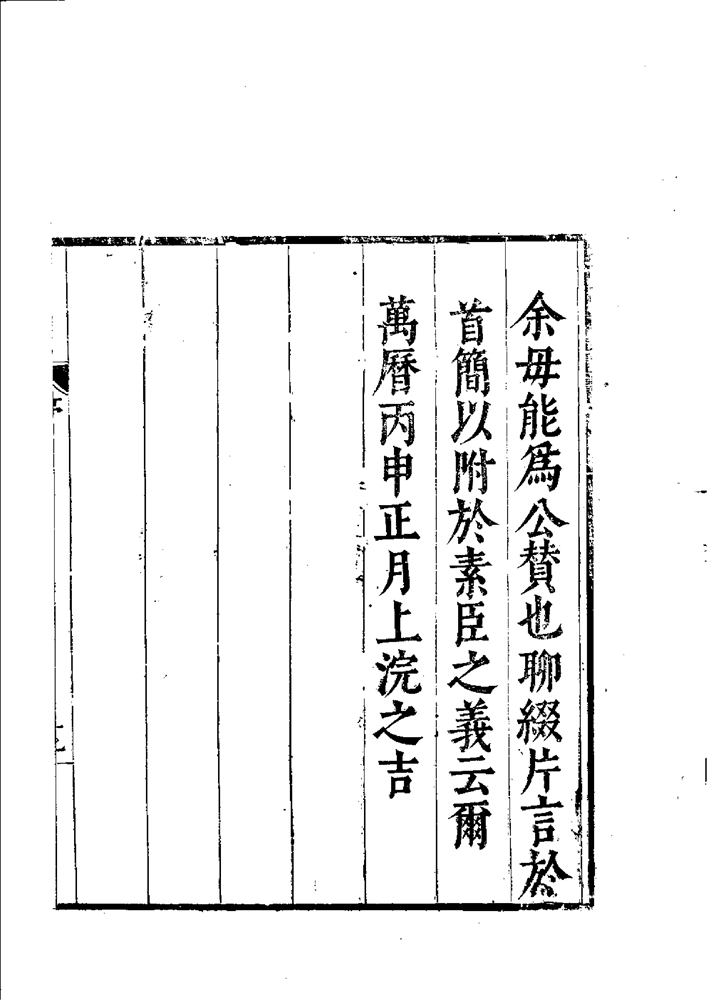 余毋能爲公賛也聊綴片言於
首簡以附於素臣之義云爾
萬曆丙申正月上浣之吉